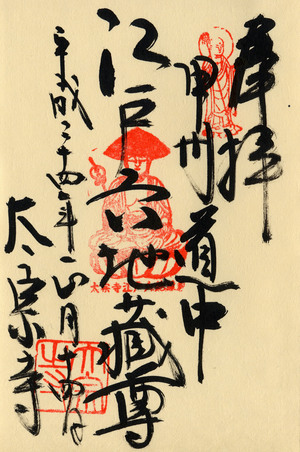 奉拝
甲州道中
江戸六地蔵尊
平成二十四年正月十四日
太宗寺